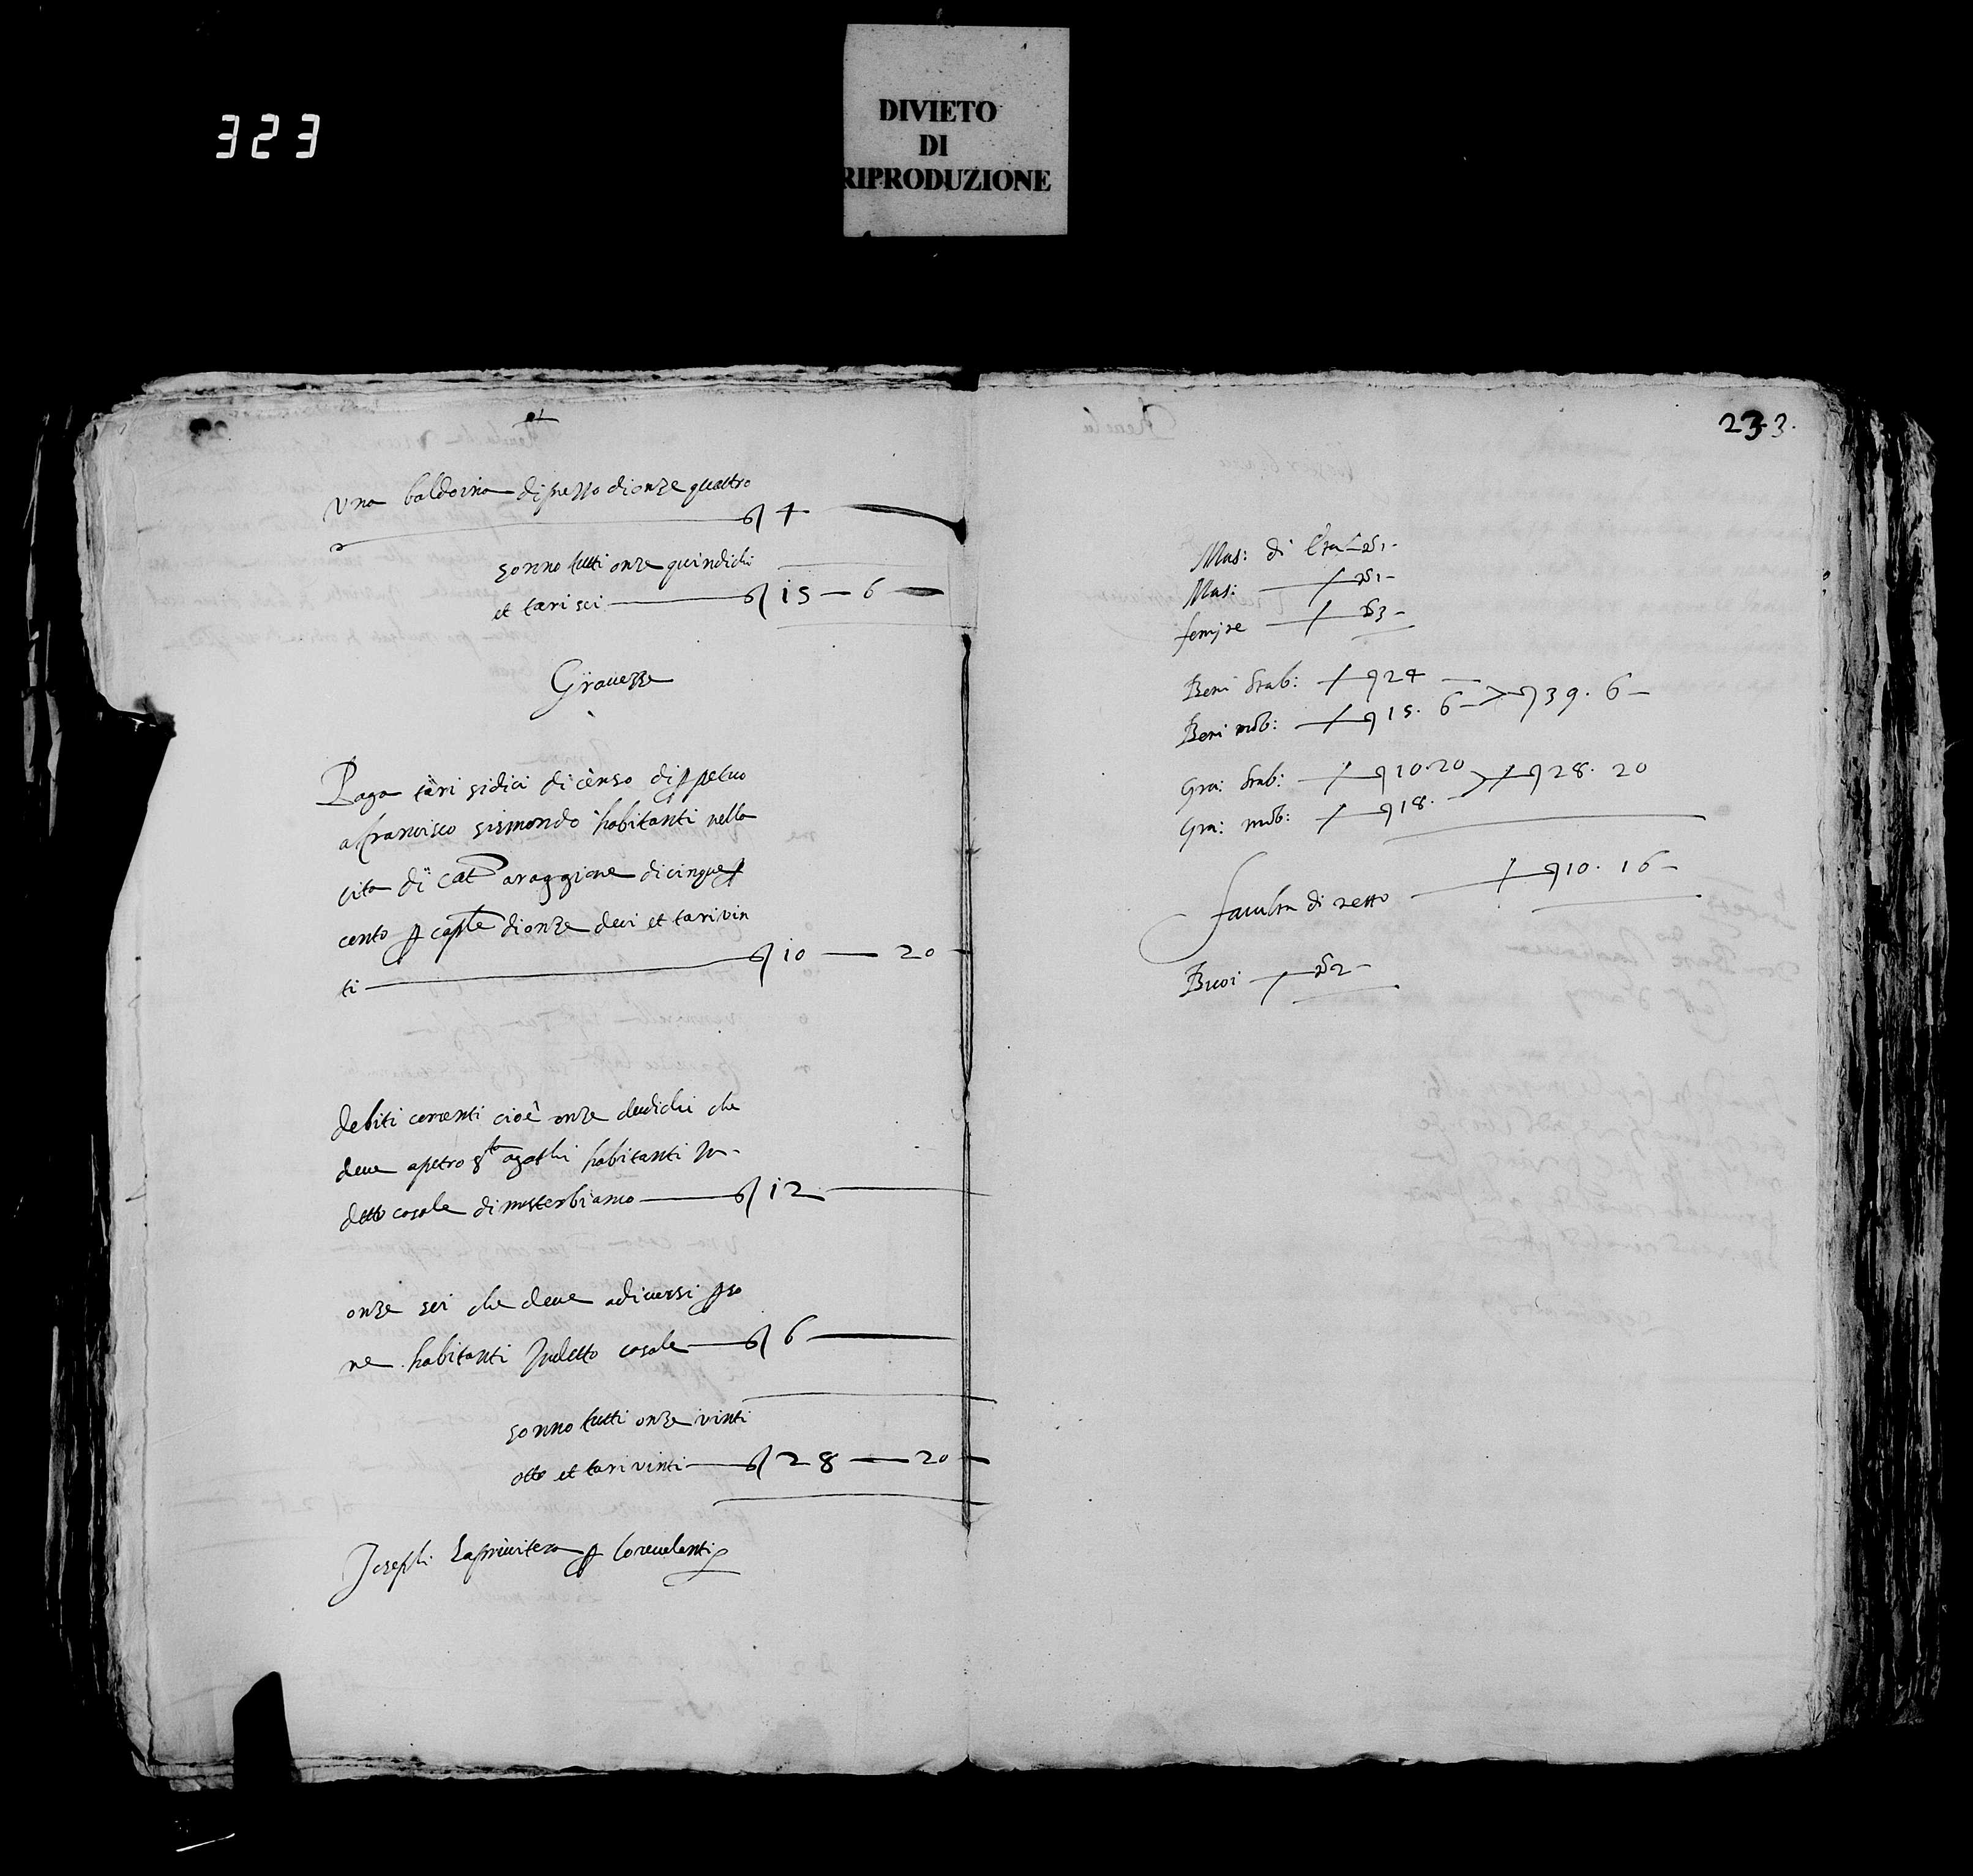 323
DIVIETO
DI
RIPRODUZIONE
una baldoina di prezzo di onze quattro
4
sonno tutti onze quindichi
et tari sei 15 — 6
Gravezze
Paga tari sidici di censo di ppetuo
a francisco sismondo habitanti nella
cita di Cat.a a raggione di cinque p
cento p cap.le di onze deci et tari vin
ti 10 — 20
debiti correnti cioè onze dudichi che
deve a petro s.to agathi habitanti in
detto casale di misterbianco 12
onze sei che deve a diversi pso
ne habitanti in detto casale 6
sonno tutti onze vinti
otto et tari vinti 28 — 20
Joseph la privitera p lo revelanti
233.
Mas: di 1
Mas: 1
femine 3
Beni stab: 24
Beni mob: 15. 6 39. 6
Gra: stab: 10.20 28. 20
Gra: mob: 18.
facultà di netto 10. 16
Buoi 2